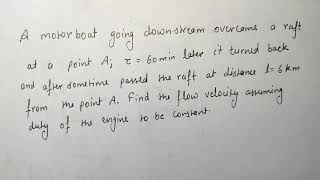 A motorboat going downstream overcame a raft
at a point A; τ = 60 min later it turned back
and after sometime passed the raft at distance l = 6 km
from the point A. Find the flow velocity assuming
duty of the engine to be constant.